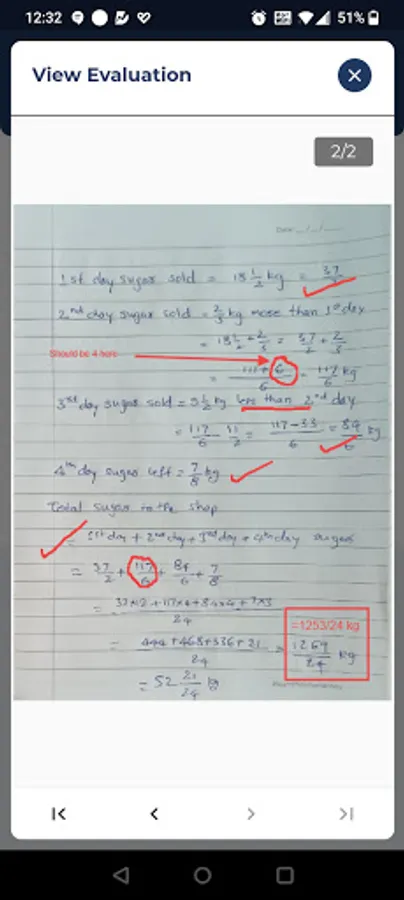 12:32
51%
View Evaluation
2/2
Date
1st day sugar sold = 18 1/2 kg = 37/2
2nd day sugar sold = 2/3 kg more than 1st day
= 18 1/2 + 2/3 = 37/2 + 2/3
Should be 4 here
= 111+6/6 = 117/6 kg
3rd day sugar sold = 5 1/2 kg less than 2nd day
= 117/6 - 11/2 = 117-33/6 = 84/6 kg
4th day sugar left = 7/8 kg
Total sugar in the shop
= 1st day + 2nd day + 3rd day + 4th day sugar
= 37/2 + 117/6 + 84/6 + 7/8
= 37×12 + 117×4 + 84×4 + 7×3/24
=1253/24 kg
= 444+468+336+21/24 = 1269/24 kg
= 52 21/24 kg